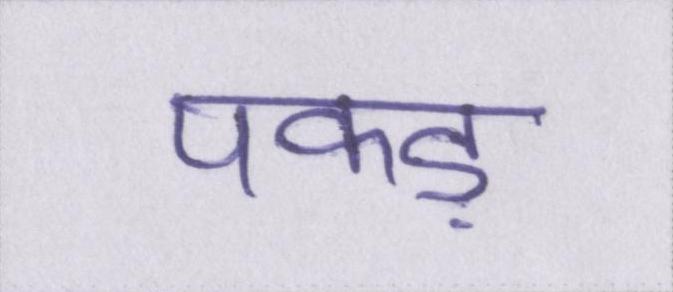 पकड़